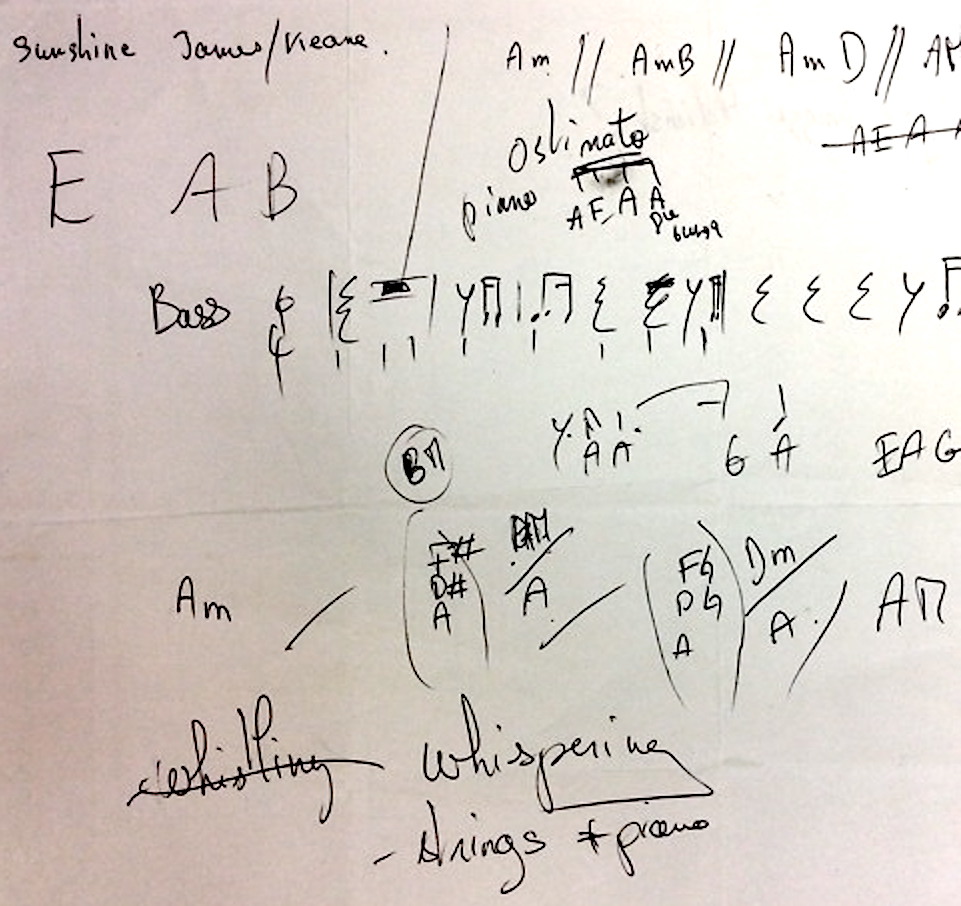 Sunshine James/Keane.
Am // AmB // Am D // AM
Ostinato
AEA
piano
A E A A
E A B
Bass 6
4
A A G A EAG
BM
F#
D#
A
A
F♮
D♮
A
Dm
A
Am AM
whistling whispering
- strings + piano